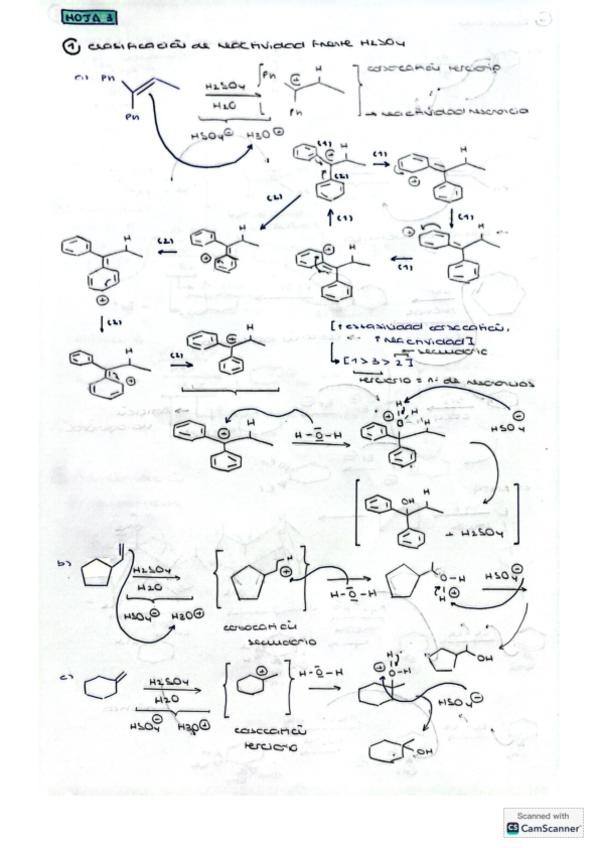 HOJA 3
① clasificación de reactividad frente H2SO4
a) Ph
Ph
H2SO4
H2O
HSO4⊖ H3O⊕
Ph
⊕
H
Ph
carbocatión terciario
→ reactividad
(1)
⊕
H
(2)
(1)
H
⊕
(2)
(1)
(1)
H
⊕
(2)
H
⊕
H
⊕
(1)
H
⊕
(2)
H
⊕
(2)
⊕
H
[↑ estabilidad carbocatión,
↑ reactividad]
secundario
[1 > 3 > 2]
terciario =
⊕
H
H-O-H
H
H
O
⊕
H
HSO4⊖
OH
H
+ H2SO4
b)
H2SO4
H2O
HSO4⊖ H3O⊕
H
⊕
carbocatión
secundario
H-O-H
O-H
⊕
H
HSO4⊖
OH
c)
H2SO4
H2O
HSO4⊖ H3O⊕
⊕
carbocatión
terciario
H-O-H
H
⊕
O-H
HSO4⊖
OH
Scanned with
CS CamScanner